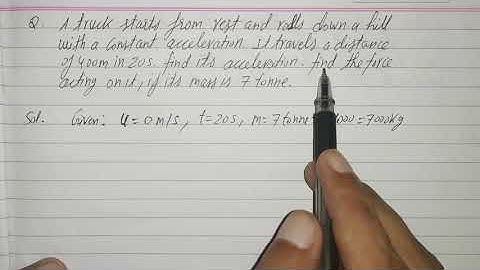 Q. A truck starts from rest and rolls down a hill
with a constant acceleration. It travels a distance
of 400m in 20s. find its acceleration. find the force
acting on it, if its mass is 7 tonne.
Sol. Given: u = 0 m/s, t = 20s, m = 7 tonne = 7000Kg